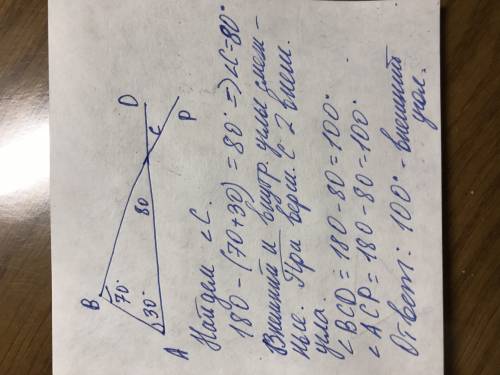 B
70°
30°
A
80
C
D
P
Найдем ∠C.
180 - (70+30) = 80° => ∠C = 80°
Внешний и внутр. углы смеж-
ные. При верш. C - 2 внеш.
угла.
∠BCD = 180 - 80 = 100°
∠ACP = 180 - 80 = 100°
Ответ: 100° - внешний
угол.